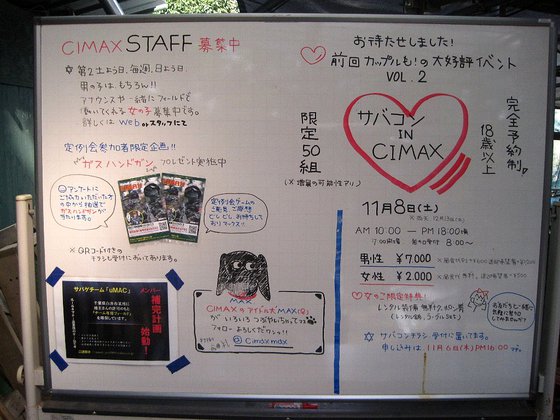 CIMAX STAFF 募集中
☆ 第2土よう日、毎週、日よう日
男の子は、もちろん!!
アナウンスや一緒にフィールドで
動いてくれる女の子募集中です。
詳しくは web orスタッフにて
定例会参加者限定企画!!
ガスハンドガン プレゼント実施中
アンケートに
ご協力いただいた方
の中から抽選で
ガスハンドガンが
当たります。
定例会ゲームの
ご意見、ご感想
どしどしお待ちして
おりマース!!
※QRコード付きの
チラシも受付においてあります。
サバゲチーム「uMAC」
メンバー
補完計画
始動!
MAX
CIMAXのアイドル犬MAX(♀)
がいろいろつぶやいちゃってマス
フォローよろしくだワン!!
@Cimaxmax
お待たせしました!
前回カップルも!の大好評イベント
VOL.2
サバコン
IN
CIMAX
限定50組
(※増員の可能性アリ)
完全予約制。
18歳以上
11月8日(土)
AM 10:00 ― PM 18:00頃
7:00開場 受付 8:00~
男性 ¥7.000
女性 ¥2.000
♡女のコ限定特典!
レンタル装備 無料
お友だちと一緒に
気軽に参加
してみませんか?
☆ サバコンチラシ 受付に置いてます。
申し込みは、11月6日(木)PM16:00まで。